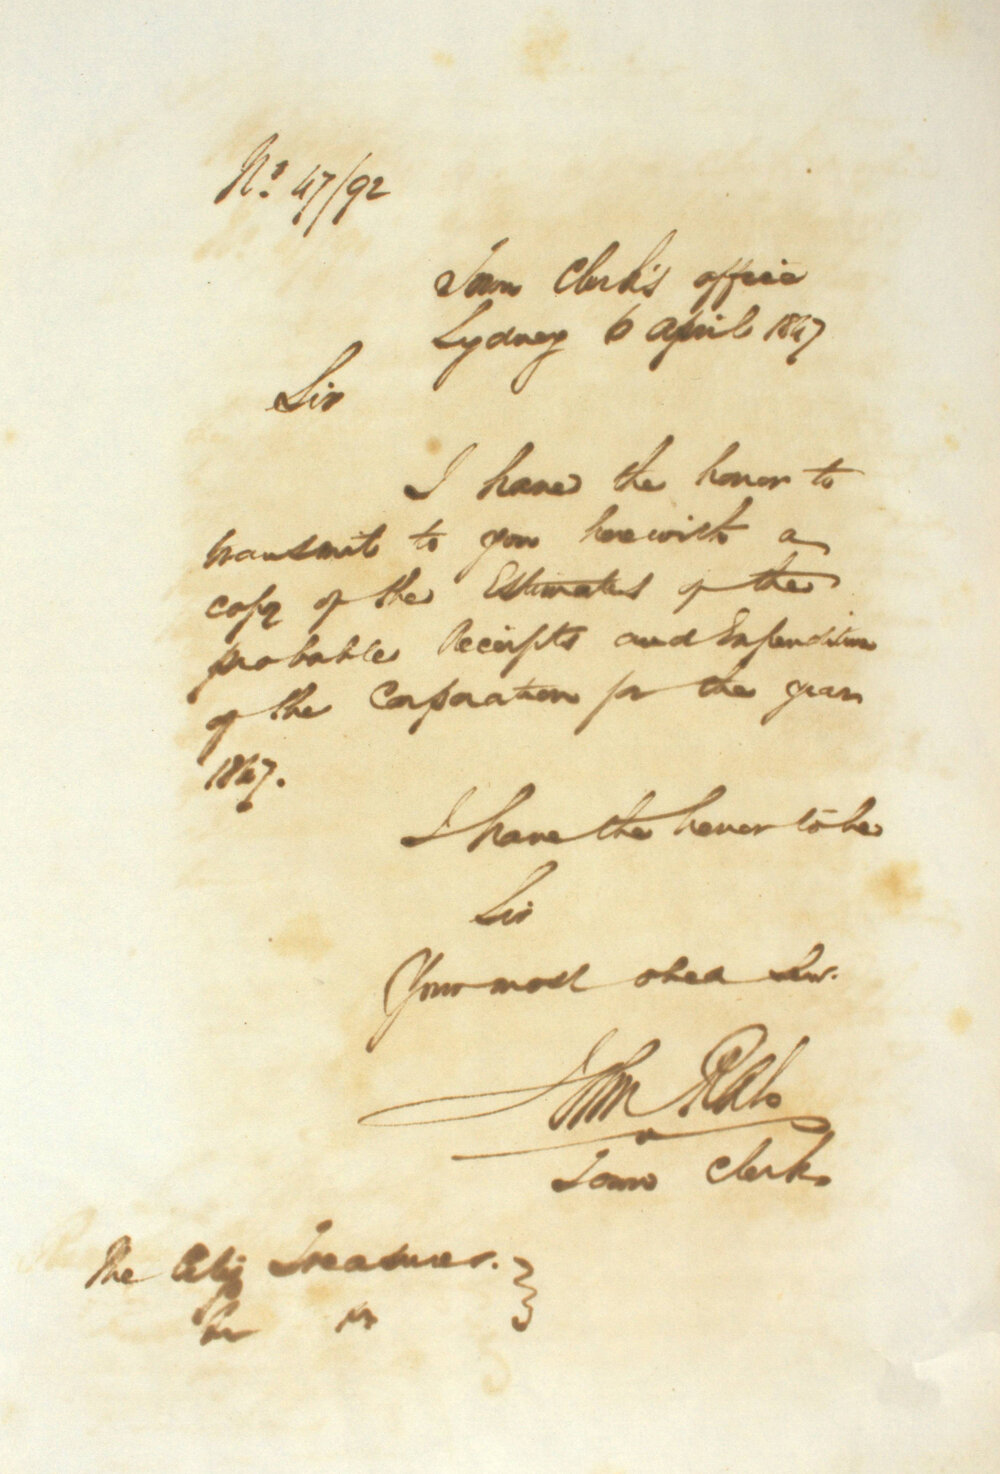 No. 47/92
Town Clerk's office
Sydney 6 April 1847
Sir
I have the honor to
transmit to you herewith a
copy of the Estimates of the
probable Receipts and Expenditure
of the Corporation for the year
1847.
I have the honor to be
Sir
Your most obed Ser.
John Rae
Town Clerk
The City Treasurer.